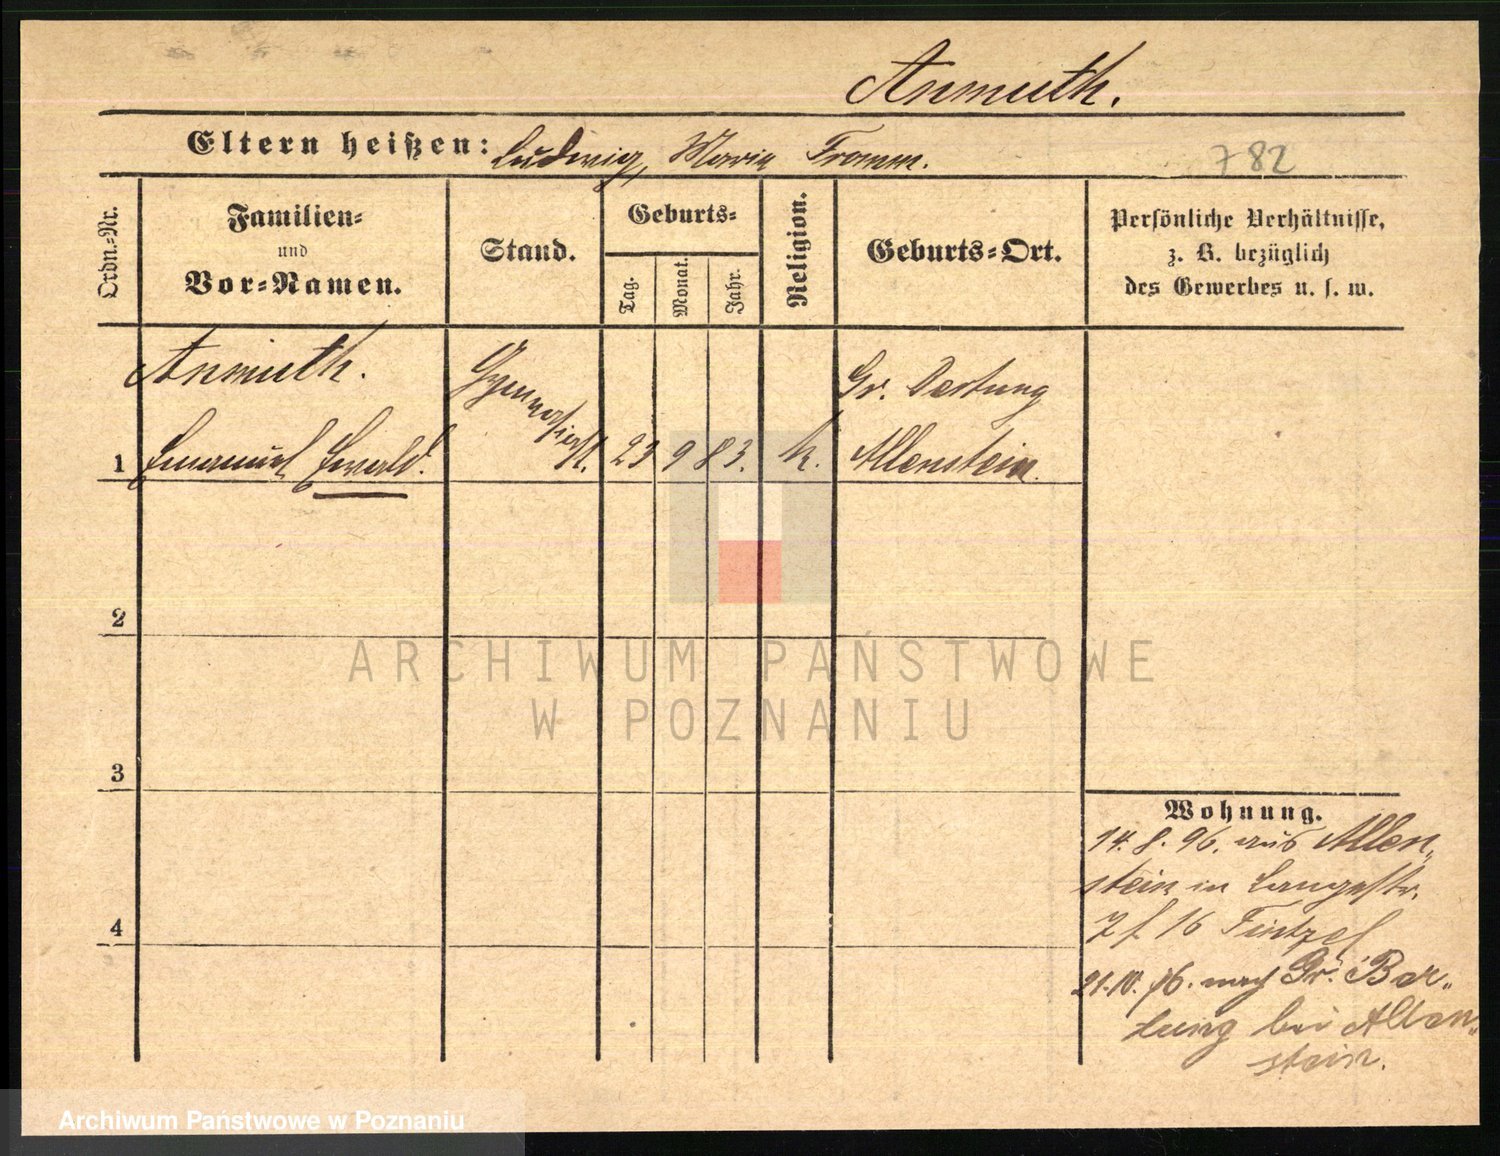 Anmuth.
Eltern heißen: Ludwig, Maria Fromm.
782
Ordn.-Nr.
Familien-
und
Vor-Namen.
Stand.
Geburts-
Tag.
Monat.
Jahr.
Religion.
Geburts-Ort.
Persönliche Verhältnisse,
z. B. bezüglich
des Gewerbes u. s. w.
Anmuth.
Gymnasiast.
Gr.
1 Emanuel Ewald. 23 9 83. k. Allenstein.
2
ARCHIWUM PAŃSTWOWE
W POZNANIU
3
4
Wohnung.
14. 8. 96. aus Allen-
stein in Langestr.
7 f 16
21. 10. 96. nach Gr. Bar-
tung bei Allen-
stein.
Archiwum Państwowe w Poznaniu